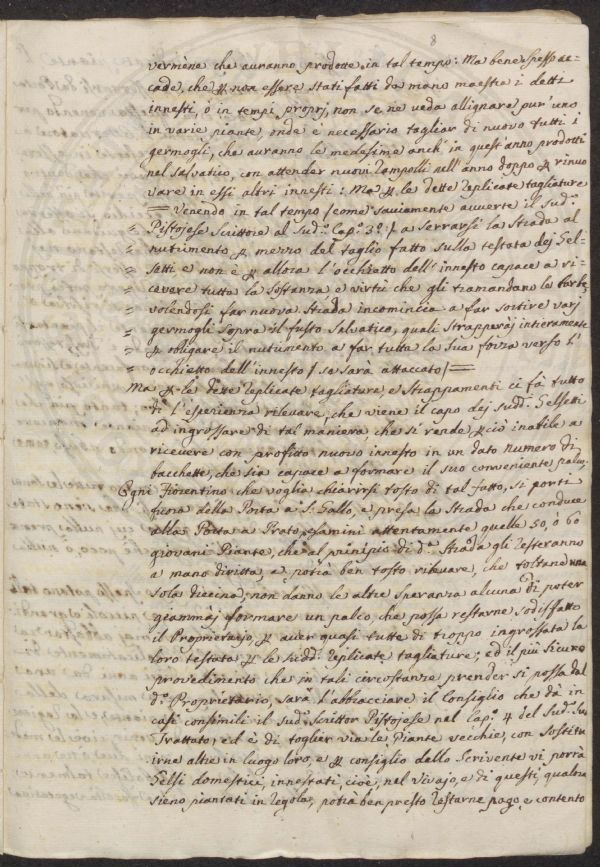 8
vermène che auranno prodotte in tal tempo: Ma bene spesso ac-
cade, che p non essere stati fatti da mano maestra i detti
innesti, ò in tempi proprj, non se ne veda allignare pur' uno
in varie piante, onde è necessario tagliar di nuovo tutti i
germogli, che auranno le medesime anch' in quest' anno prodotti
nel salvatico, con attender nuovi rampolli nell' anno doppo p rinuo
vare in essi altri innesti: Ma p le dette replicate tagliature
= Venendo in tal tempo /come saviamente avverte il Sud.º
= Pistojese Scrittore al Sud.º Cap.º 3.º/ a serrarsi la strada al
= nutrimento p mezzo del taglio fatto sulla testata dej Gel-
= setti e non è p allora l'occhietto dell' innesto capace a ri-
= cevere tutta la sostanza e virtù che gli tramandano le barbe,
= volendosi far nuova strada incomincia a far sortire varj
= germogli sopra il fusto salvatico, quali strapperaj intieramente
= p obligare il nutrimento a far tutta la sua forza verso l'
= occhietto dell' innesto /se sarà attaccato/=
Ma p le dette replicate tagliature, e strappamenti ci fà tutto
dì l'esperienza rilevare, che viene il capo dej sudd.i Gelsetti
ad ingrossare di tal maniera che si rende p ciò inabile a
ricevere con profitto nuovo innesto in un dato numero di
bacchette, che sia capace a formare il suo conveniente palco.
Ogni Fiorentino che voglia chiarirsi tosto di tal fatto, si porti
fuora della Porta a S. Gallo, e presa la strada che conduce
alla Porta a Prato, esamini attentamente quelle 50, ò 60
giovani Piante, che al principio di d.ª strada gli resteranno
a mano diritta, e potrà ben tosto rilevare, che toltane una
sola diecina, non danno le altre speranza alcuna di poter
giammaj formare un palco, che possa restarne sodisfatto
il Proprietario, p aver quasi tutte di troppo ingrossata la
loro testata p le sudd.e replicate tagliature; ed il più sicuro
provedimento che in tali circostanze prender si possa dal
d.º Proprietario, sarà l'abbracciare il Consiglio che dà in
casi consimili il Sud.º Scrittor Pistojese nel Cap.º 4 del Sud.º suo
Trattato, ed è di toglier via le Piante vecchie, con sostitu
irne altre in luogo loro, e p consiglio dello Scrivente vi porrà
Gelsi domestici, innestati, cioè, nel vivajo, e di questi, qualora
sieno piantati in regola, potrà ben presto restarne pago, e contento